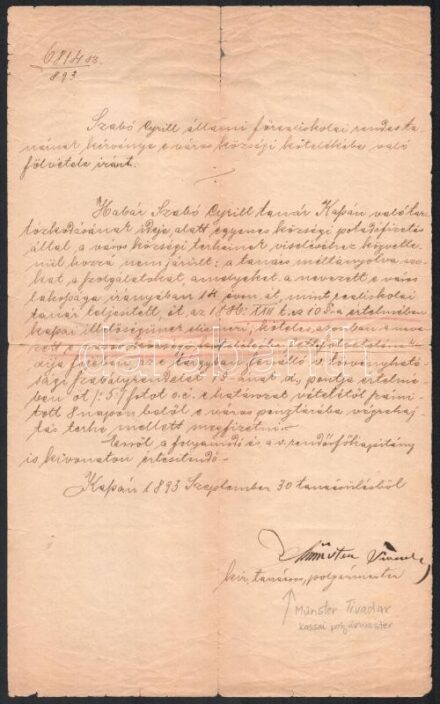 6814 sz.
893
Szabó Cyrill állami főreáliskolai rendes ta-
nárnak kérvénye e város községi kötelékébe való
fölvétele iránt.
Habár Szabó Cyrill tanár Kassán való tar-
tózkodásának ideje alatt egyenes községi pótadófizetés
által a város községi terheinek viseléséhez közvetle-
nül hozzá nem járult: a tanács méltányolva azo-
kat a szolgálatokat, amelyeket a nevezett e város
lakossága irányában 14 éven át, mint reáliskolai
tanár teljesített, őt az 1886: XXII t. cz 10 §-a értelmében
kassai illetőségűnek elismeri, köteles azonban a neve-
zett
díja fejében a tárgyban fennálló törvényható-
sági szabályrendelet pontja értelmé-
ben öt /:5:/ frtot o.é. e határozat vételétől számí-
tott 8 napon belül e város pénztárába végrehaj-
tás terhe mellett megfizetni.
Erről a folyamodó és a v. rendőrfőkapitány
is kivonaton értesítendő.
Kassán 1893 Szeptember 30 tanácsülésből
Münster Tivadar
kir. tanácsos, polgármester
Münster Tivadar
kassai polgármester
darabanth